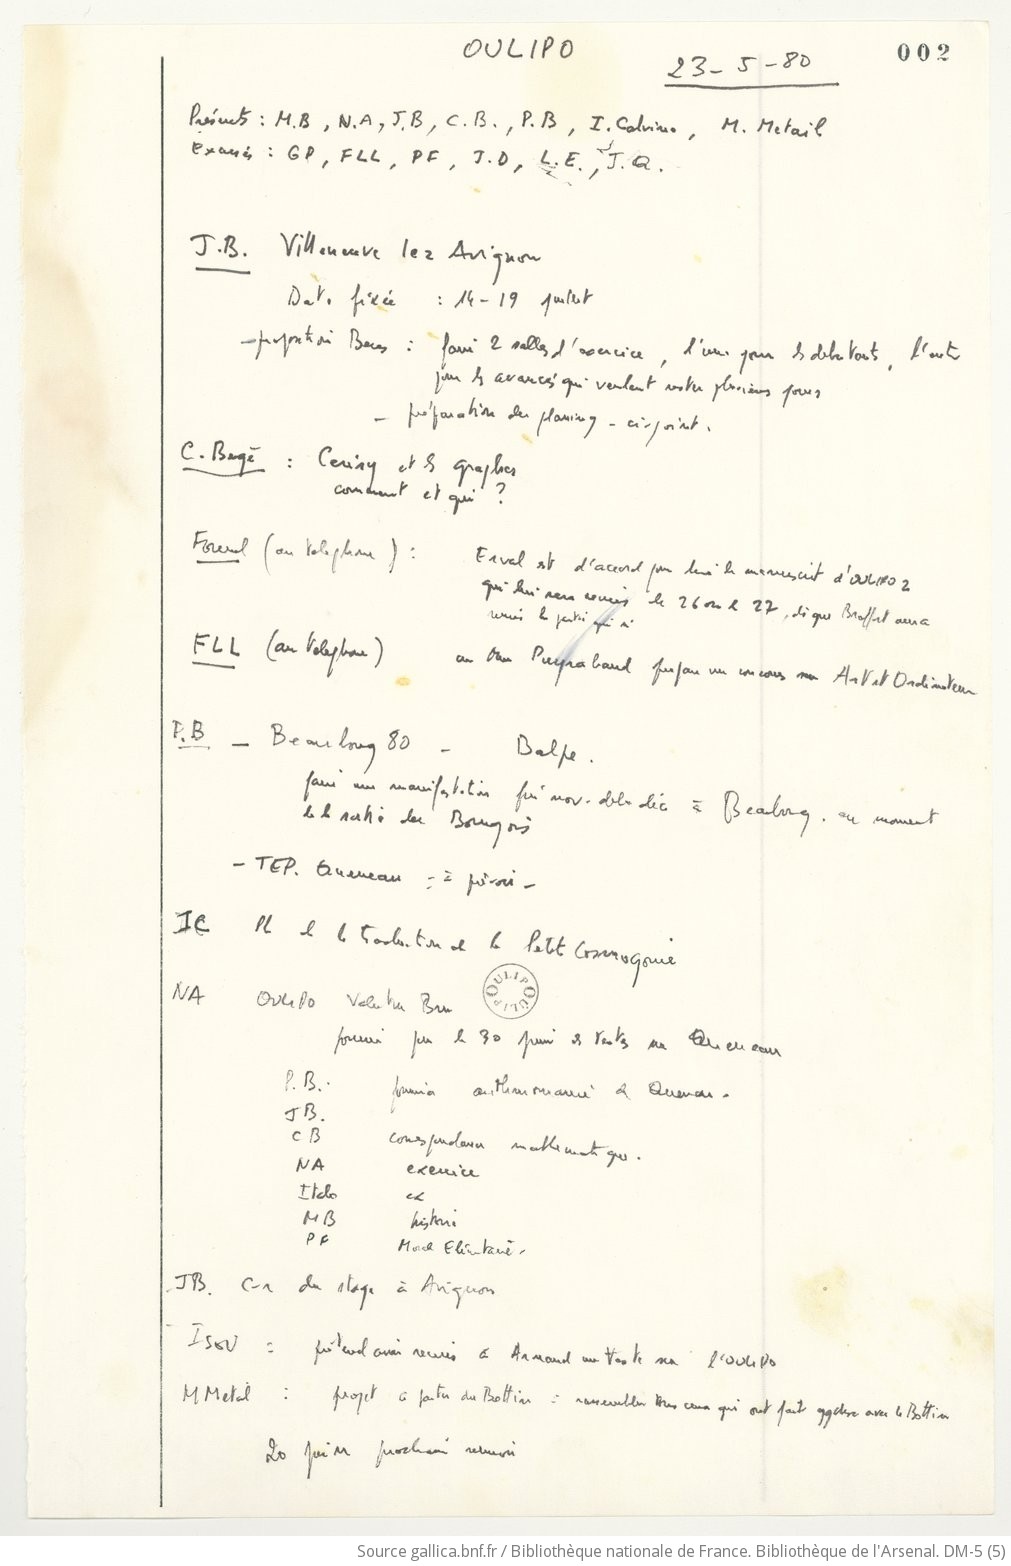 OULIPO
002
23-5-80
Présents : M.B, N.A, J.B, C.B., P.B, I. Calvino, M. Metail
Excusés : GP, FLL, PF, J.D, L.E., J.Q.
J.B. Villeneuve lez Avignon
Date fixée : 14-19 juillet
- proposition Bens : faire 2 salles d'exercice, l'une pour les débutants, l'autre
pour les avancés qui veulent rester plusieurs jours
- préparation du planning - ci-joint.
C. Berge : Cerisy et les graphes
comment et qui ?
Fournel (au telephone) :
Erval est d'accord pour lire le manuscrit d'OULIPO 2
qui lui sera remis le 26 ou le 27, dès que Braffort aura
remis la partie qui
FLL (au telephone)
un concours sur Art et Ordinateur
P.B - Beaubourg 80 - Balpe.
faire une manifestation fin nov. debu déc à Beaubourg. au moment
de la sortie du Bourgois
- TEP. Queneau : à prévoir -
IC de la traduction de la Petite Cosmogonie
NA OULIPO Valentin Bru
OULIPO OULIPO
fournir pour le 30 juin des textes sur Queneau
P.B. : fournira de Queneau.
J B.
C B correspondance mathématique.
NA exercice
Italo ex
MB histoire
PF Morale Elémentaire.
JB. C-r du stage à Avignon
Isou : prétend avoir remis à Arnaud un texte sur l'OULIPO
M Metail : projet à partir du Bottin : rassembler tous ceux qui ont fait qqchose avec le Bottin
20 juin prochaine réunion
Source gallica.bnf.fr / Bibliothèque nationale de France. Bibliothèque de l'Arsenal. DM-5 (5)